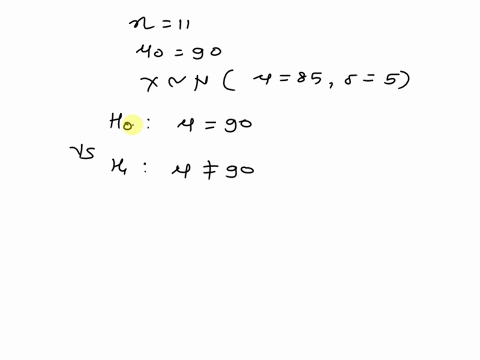 n = 11
μ0 = 90
X ~ N ( μ = 85, σ = 5)
H0 : μ = 90
vs
H1 : μ ≠ 90